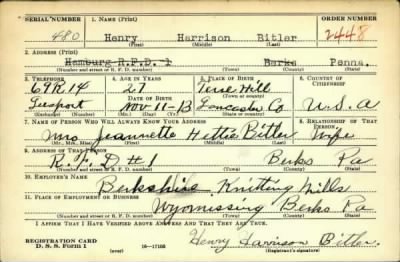 SERIAL NUMBER 1. NAME (Print) ORDER NUMBER
480 Henry Harrison Bitler 2448
(First) (Middle) (Last)
2. ADDRESS (Print)
Hamburg R.F.D. 1 Berks Penna.
(Number and street or R. F. D. number) (Town) (County) (State)
3. TELEPHONE 4. AGE IN YEARS 5. PLACE OF BIRTH 6. COUNTRY OF CITIZENSHIP
69R14 27 Terre Hill
Leesport DATE OF BIRTH Lancaster Co U.S.A
Nov-11-13
(Exchange) (Number) (Mo.) (Day) (Yr.) (State or country)
7. NAME OF PERSON WHO WILL ALWAYS KNOW YOUR ADDRESS 8. RELATIONSHIP OF THAT PERSON
Mrs Jeannette Hettie Bitler Wife
(Mr., Mrs., Miss) (First) (Middle) (Last)
9. ADDRESS OF THAT PERSON
R.F.D #1 Berks Pa
(Number and street or R. F. D. number) (Town) (County) (State)
10. EMPLOYER'S NAME
Berkshire Knitting Mills
11. PLACE OF EMPLOYMENT OR BUSINESS
Wyomissing Berks Pa
(Number and street or R. F. D. number) (Town) (County) (State)
I AFFIRM THAT I HAVE VERIFIED ABOVE ANSWERS AND THAT THEY ARE TRUE.
REGISTRATION CARD
D. S. S. Form 1 (over) 16—17105 Henry Harrison Bitler.
(Registrant's signature)